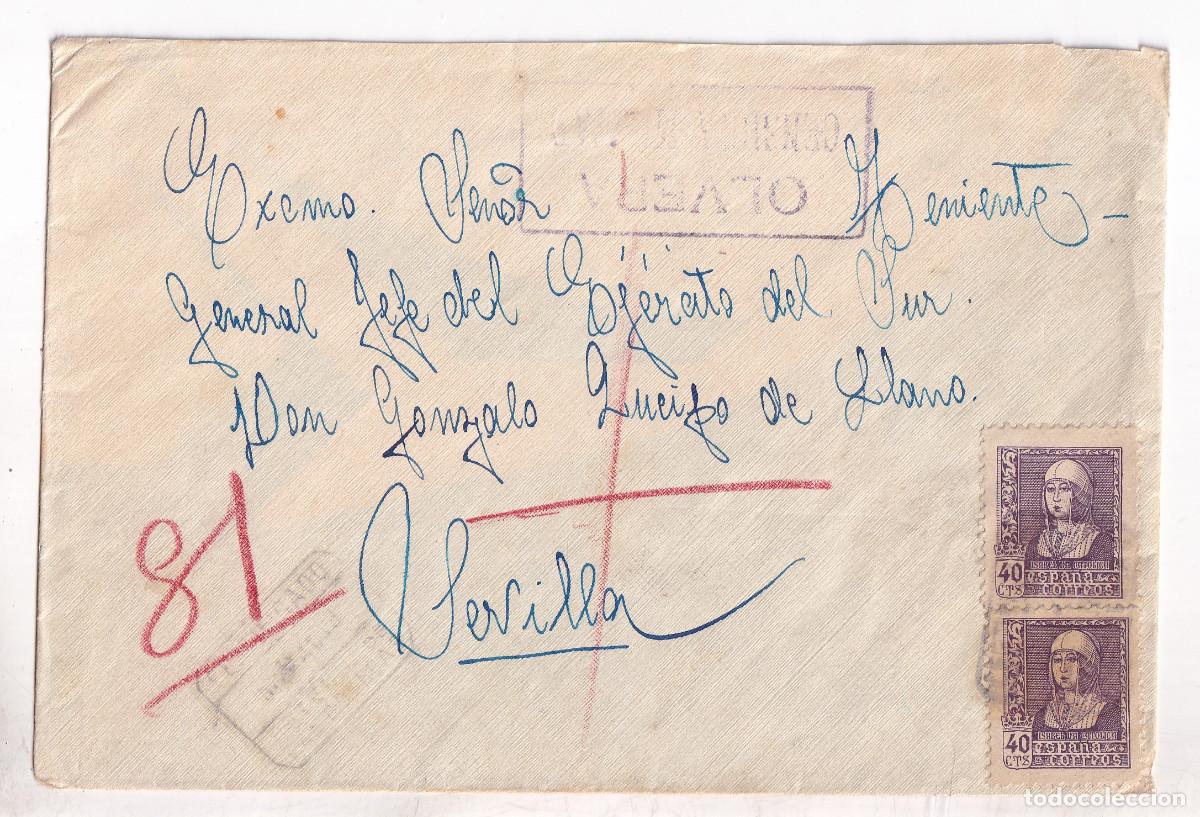 OLVERA
Excmo. Señor Teniente-
General Jefe del Ejército del Sur.
Don Gonzalo Queipo de Llano.
Sevilla
81
ISABEL LA CATOLICA
40 CTS
España
correos
ISABEL LA CATOLICA
40 CTS
España
correos
todocoleccion